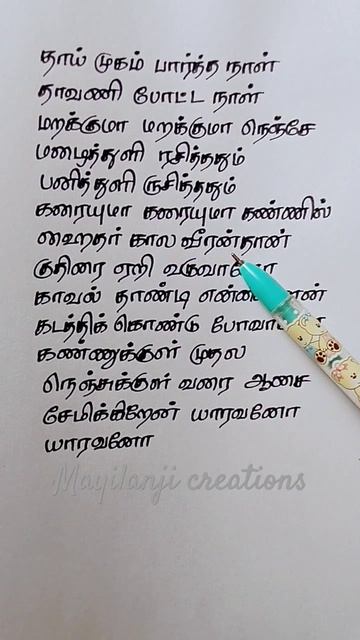 தாய் முகம் பார்த்த நாள்
தாவணி போட்ட நாள்
மறக்குமா மறக்குமா நெஞ்சே
மழைத்துளி ரசித்ததும்
பனித்துளி ருசித்ததும்
கரையுமா கரையுமா கண்ணில்
ஹைதர் கால வீரன்தான்
குதிரை ஏறி
காவல் தாண்டி
கடத்திக் கொண்டு
கண்ணுக்குள் முதல
நெஞ்சுக்குள் வரை ஆசை
சேமிக்கிறேன் யாரவனோ
யாரவனோ
Mayilanji creations